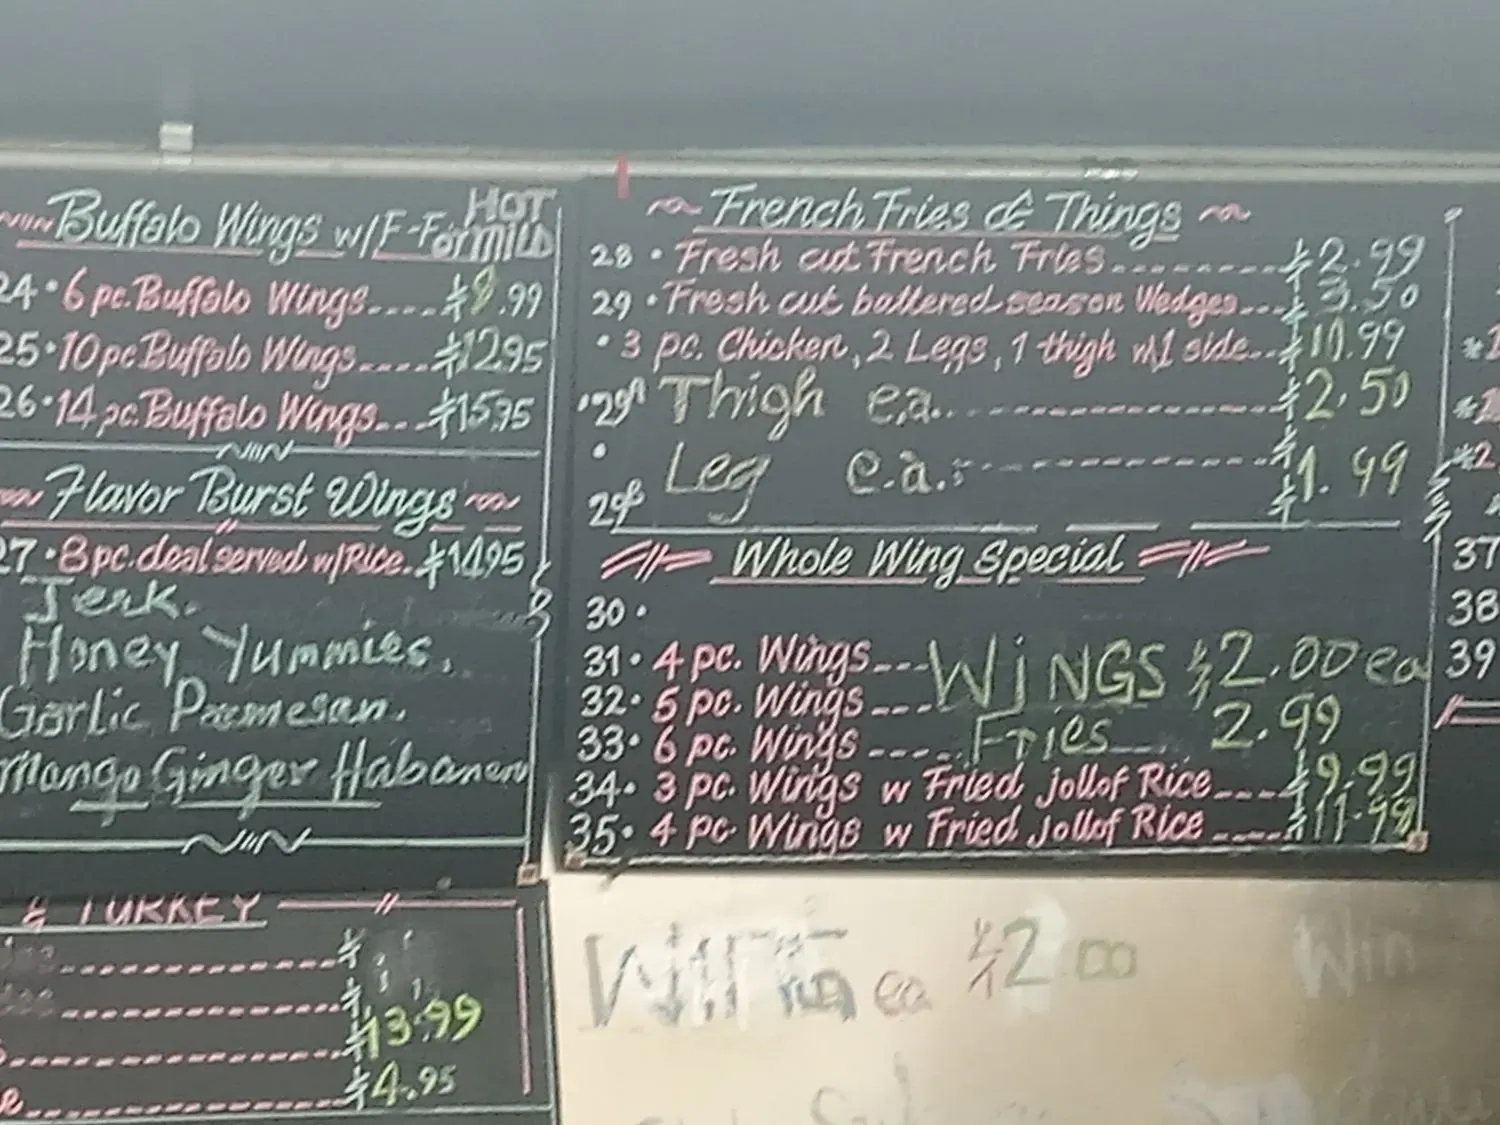 Buffalo Wings w/F-F HOT
or MILD
24 • 6 pc. Buffalo Wings.... $8.99
25 • 10 pc Buffalo Wings.... $12.95
26 • 14 pc. Buffalo Wings... $15.95
Flavor Burst Wings
27 • 8 pc. deal served w/Rice. $14.95
Jerk.
Honey Yummies.
Garlic Parmesan.
Mango Ginger Habanero
& TURKEY
$13.99
$4.95
French Fries & Things
28 • Fresh cut French Fries........ $2.99
29 • Fresh cut battered season Wedges... $3.50
• 3 pc. Chicken, 2 Legs, 1 thigh w/1 side.. $10.99
• 29A Thigh ea. ............ $2.50
• 29B Leg e.a. ............ $1.99
Whole Wing Special
30 •
31 • 4 pc. Wings... WiNGS $2.00 ea
32 • 5 pc. Wings...
33 • 6 pc. Wings .... Fries... 2.99
34 • 3 pc. Wings w Fried jollof Rice.... $9.99
35 • 4 pc. Wings w Fried jollof Rice .... $11.99
ea $2.00
Win
37
38
39